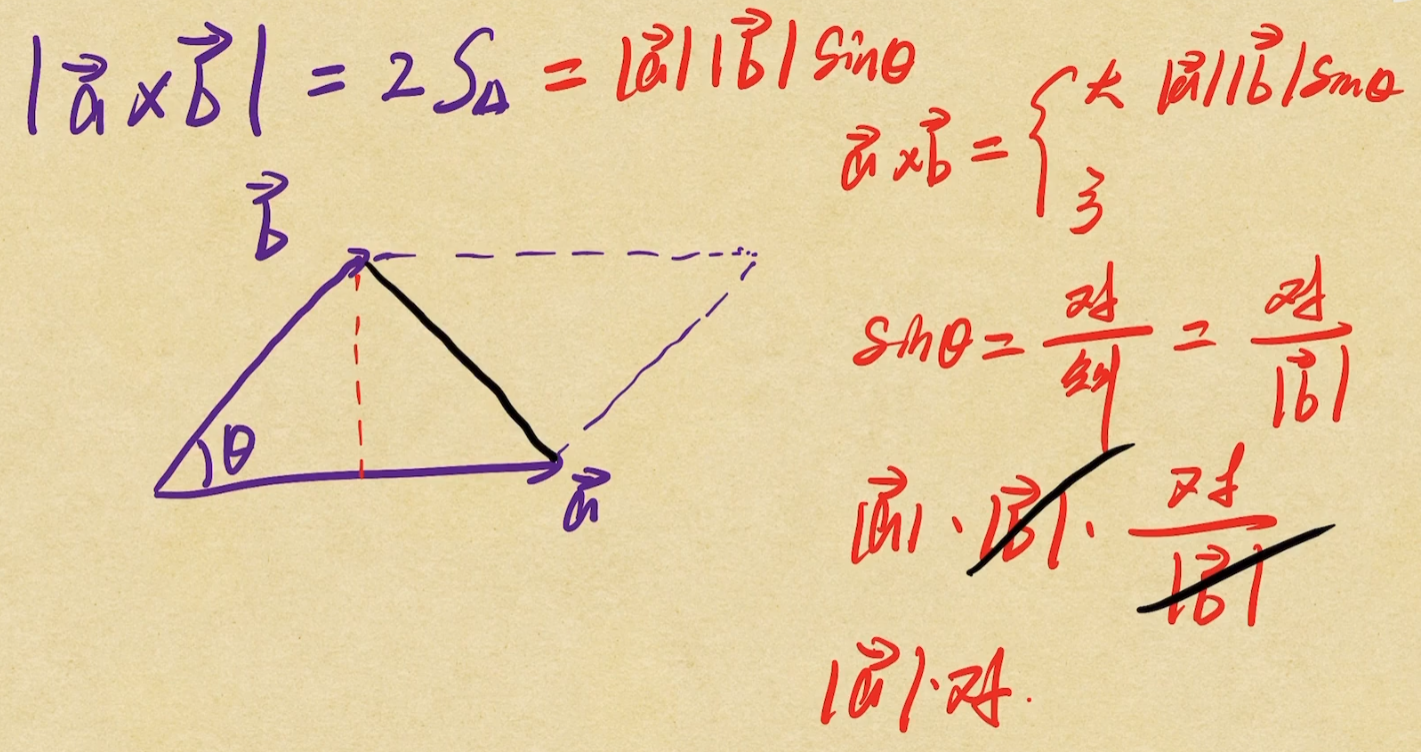 |a⃗×b⃗| = 2S△ = |a⃗||b⃗|sinθ
a⃗×b⃗ = { 大 |a⃗||b⃗|sinθ
方
b⃗
sinθ = 对/斜 = 对/|b⃗|
θ
a⃗
|a⃗|·|b⃗|·对/|b⃗|
|a⃗|·对.